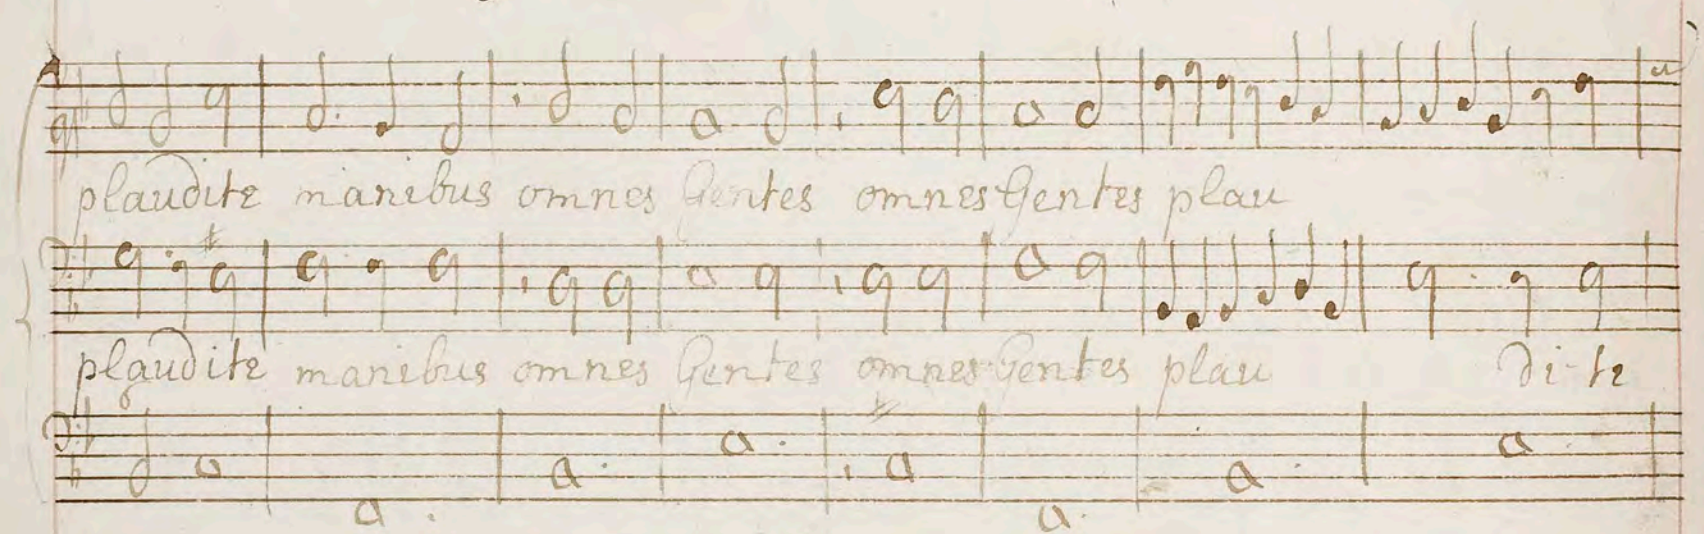 plaudite manibus omnes Gentes omnes Gentes plau
plaudite manibus omnes Gentes omnes Gentes plau di-te